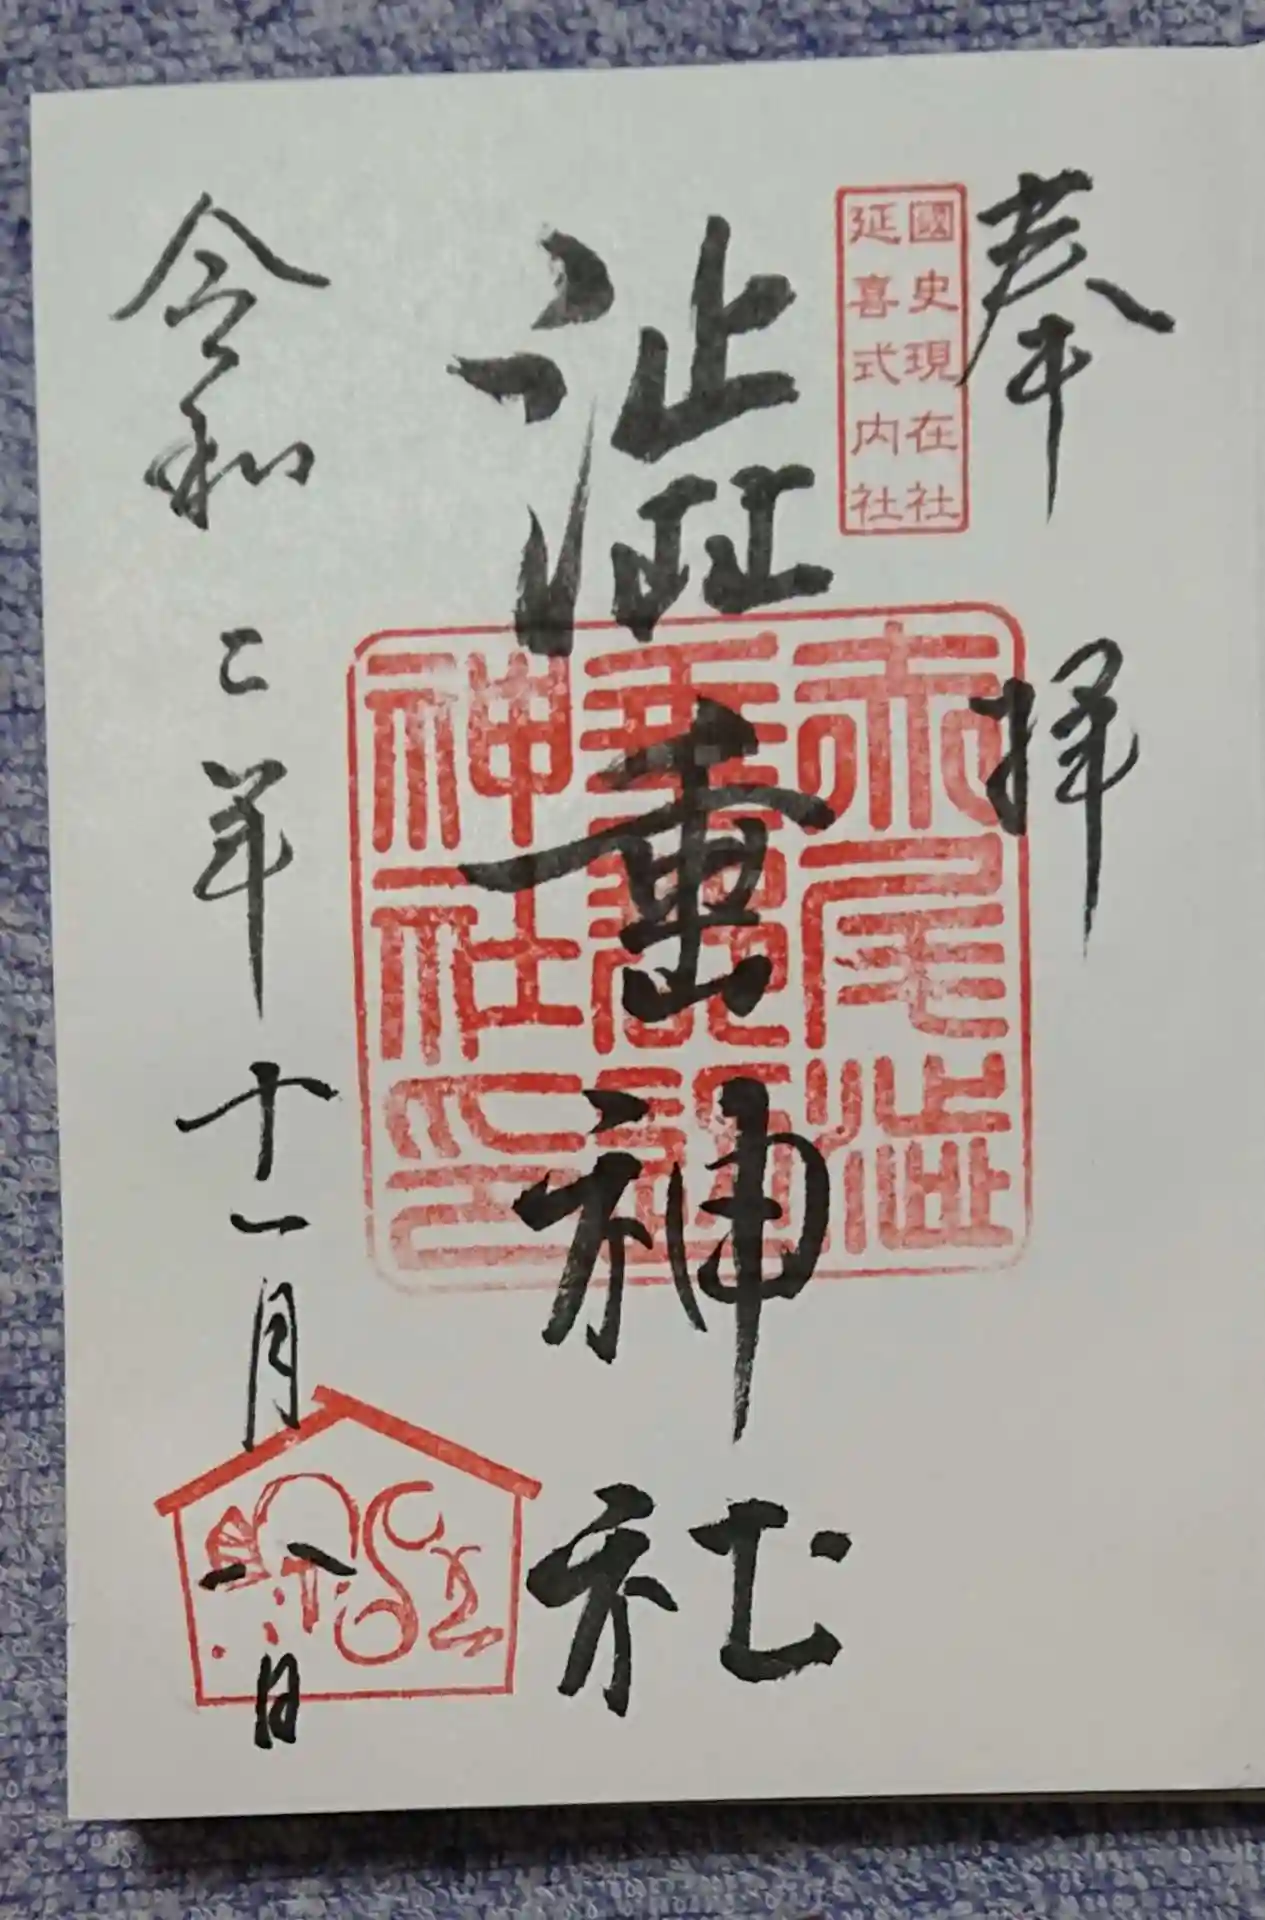 奉拝
國史現在社
延喜式内社
澁垂神社
赤尾澁
垂郡邊
神社印
令和二年十一月八日